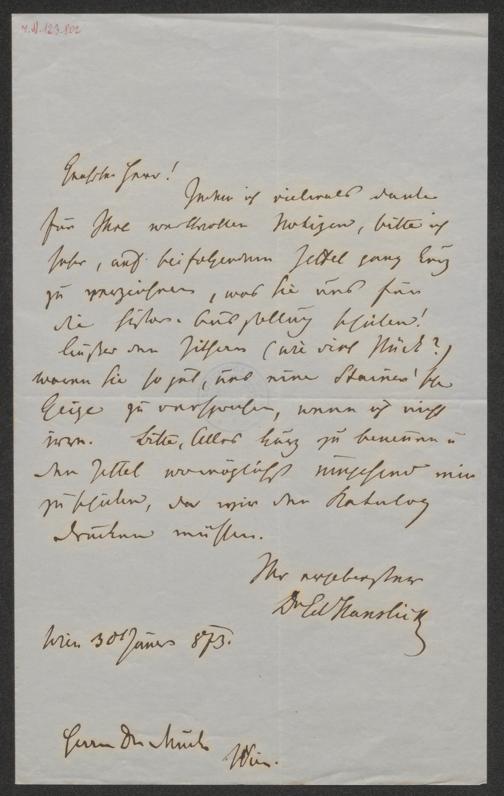 I.N.123.802
Geehrter Herr!
Indem ich vielmals danke
für Ihre werthvollen Notizen, bitte ich
sehr, auf beifolgendem Zettel ganz kurz
zu verzeichnen, was Sie uns für
die histor. Ausstellung schicken!
Außer den Zithern (wie viel Stück?)
waren Sie so gut, uns eine Stainer'sche
Geige zu versprechen, wenn ich nicht
irre. Bitte, Alles kurz zu benennen u
den Zettel womöglichst umgehend mir
zuschicken, da wir den Katalog
drucken müssen.
Ihr ergebenster
Dr Ed Hanslick
Wien 30t Jäner 873.
Herrn Dr
Wien.